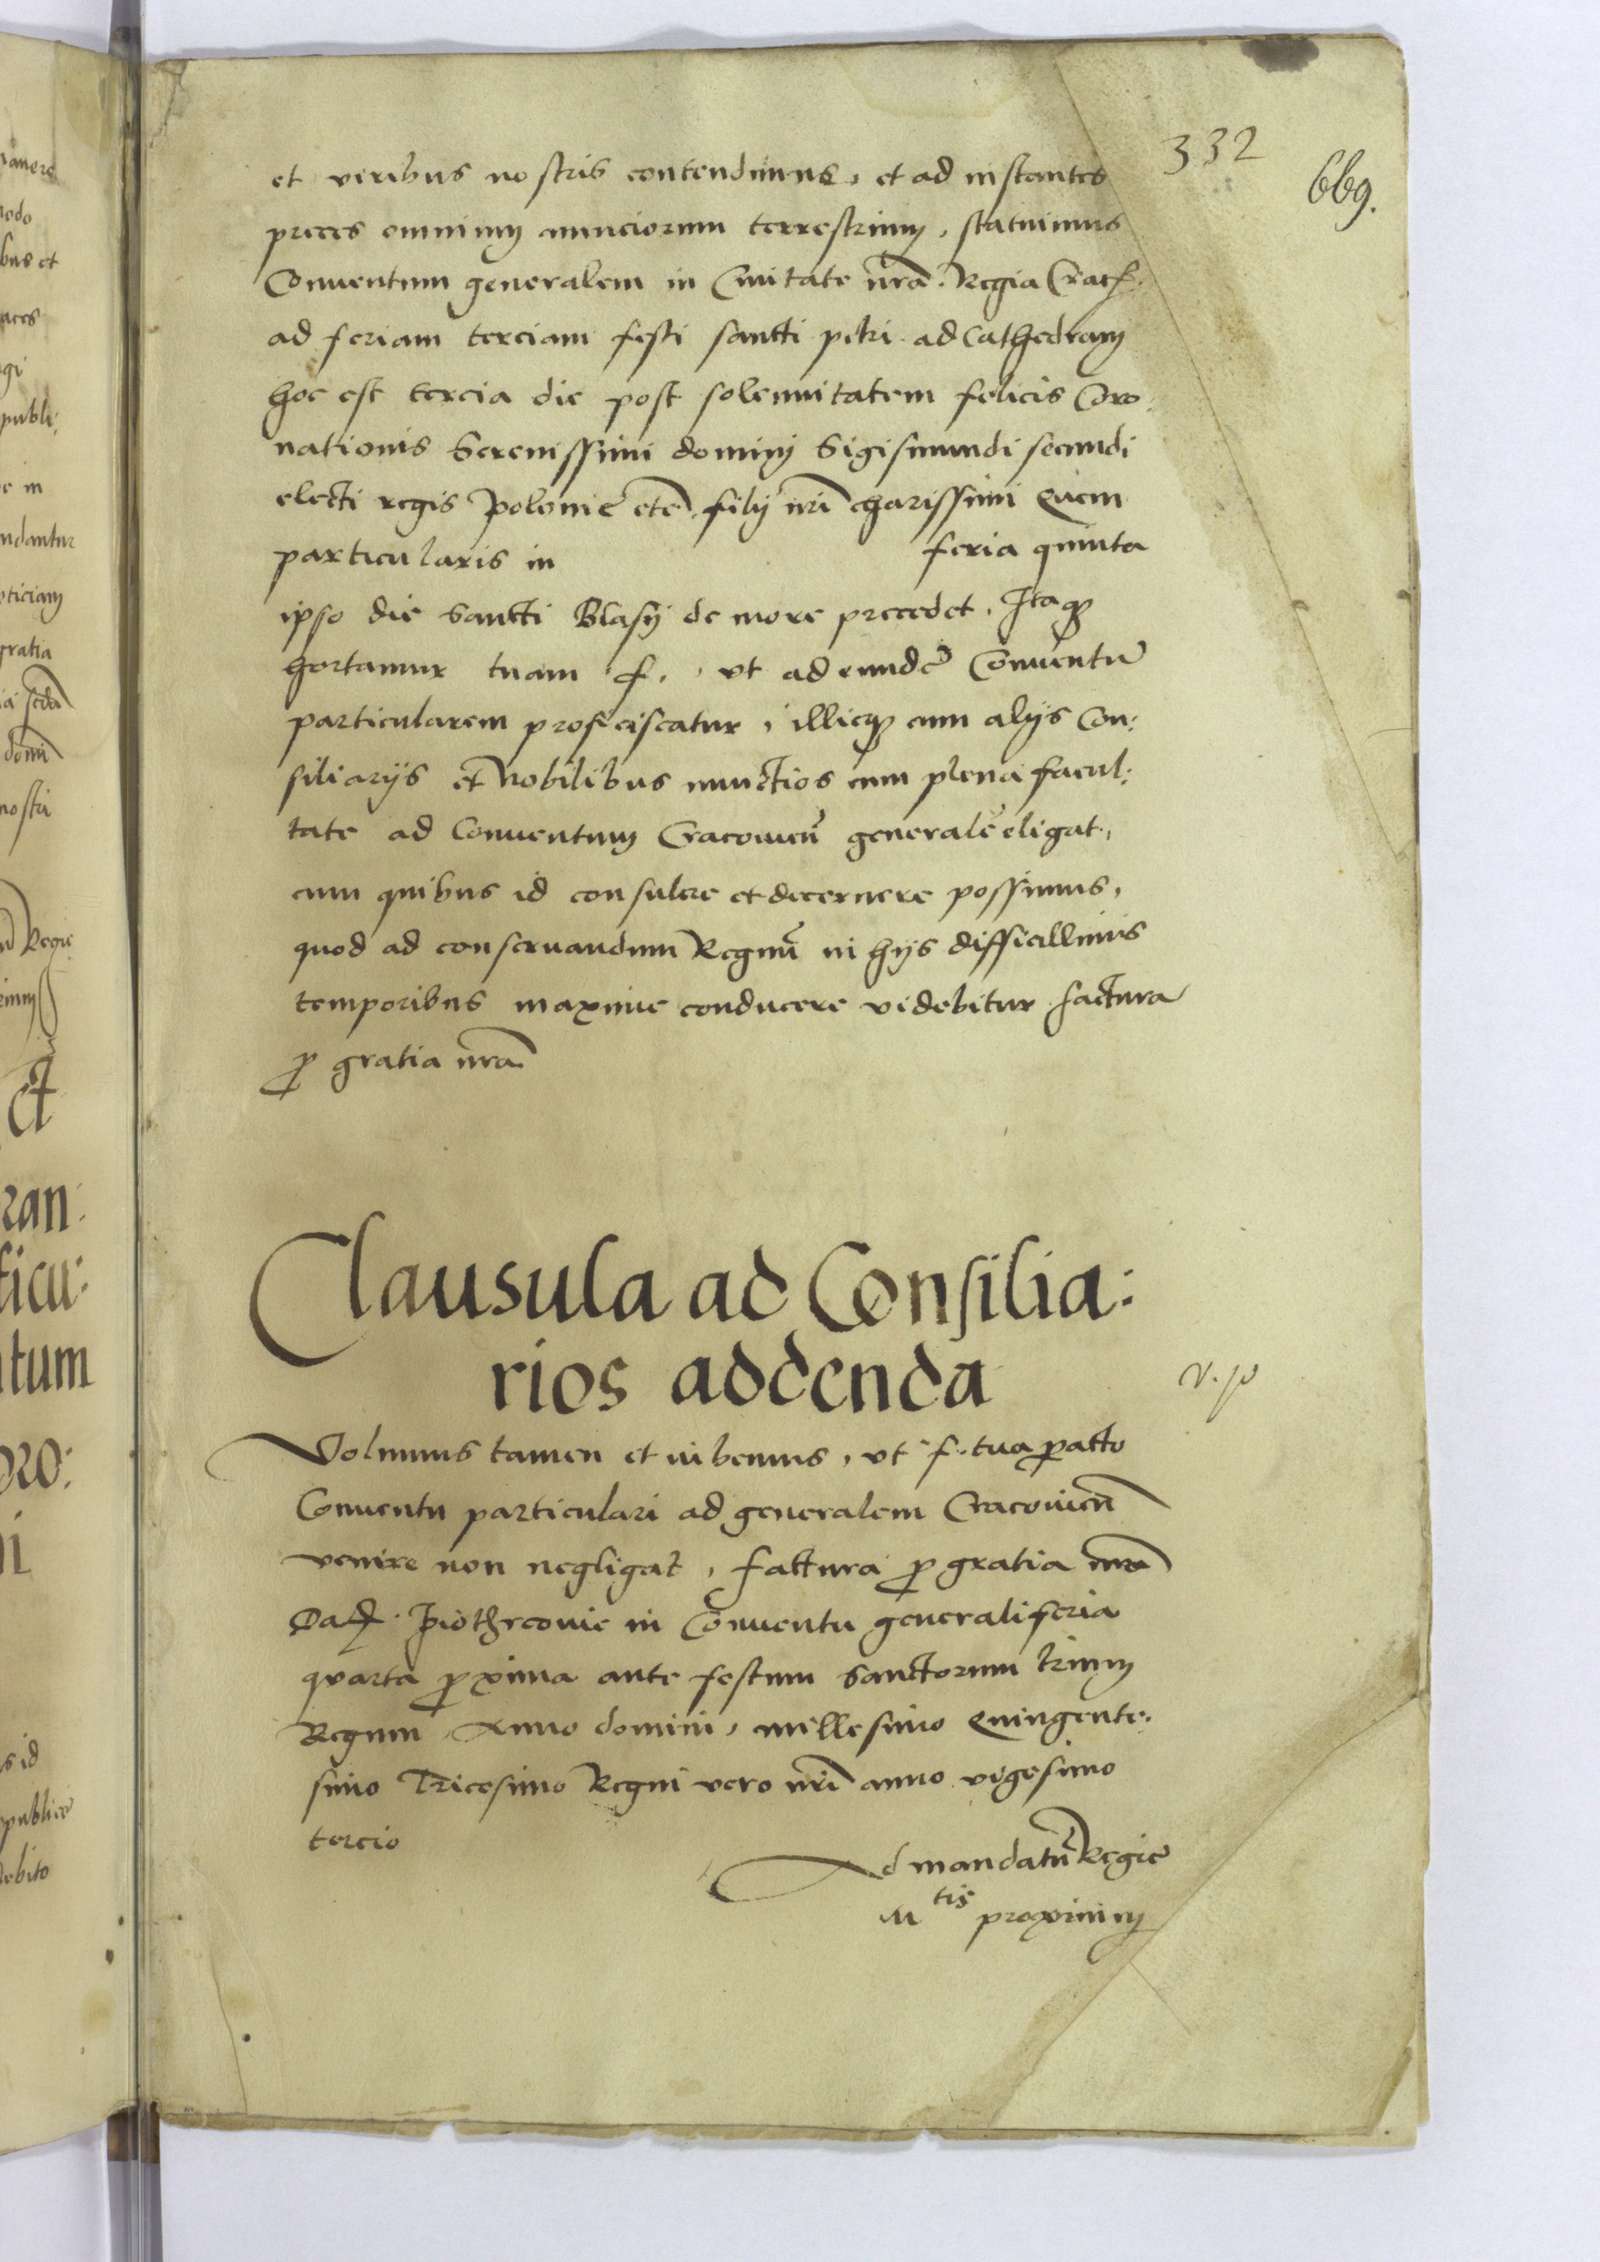 332
669.
et viribus nostris contendimus, et ad instantes
preces omnium nunciorum terrestrium, statuimus
Conuentum generalem in Ciuitate nrã. Regia Crac̃.
ad feriam terciam festi sancti petri ad Cathedram
hoc est tercia die post solennitatem felicis Coro:
nationis Serenissimi domini Sigismundi secundi
electi regis Poloniẽ etc̃. filij nrĩ charissimi Quem
particularis in feria quinta
ipso die Sancti Blasij de more precedet. Itaqʒ
hortamur tuam f., vt ad eundẽ Conuentũ
particularem proficiscatur, illicqʒ cum alijs Con:
siliarijs et Nobilibus nunctios cum plena facul:
tate ad Conuentum Cracouieñ generalẽ eligat,
cum quibus id consulere et decernere possimus,
quod ad conseruandum Regnũ in hijs difficillimis
temporibus maxime conducere videbitur factura
ꝓ gratia nrã
Clausula ad Consilia:
rios addenda
v. p
Volumus tamen et iubemus, vt f. tua ꝑacto
Conuentu particulari ad generalem Cracouieñ
venire non negligat, factura ꝓ gratia nrã
Dat̃. Piothrcouie in Conuentu generali feria
quarta ꝓxima ante festum Sanctorum trium
Regum, Anno domini, millesimo Quingente:
simo Tricesimo Regni vero nrĩ anno vigesimo
tercio
Ad mandatũ Regie
M tis proximum